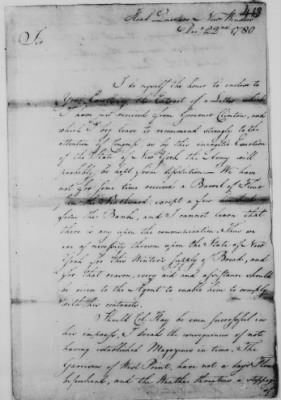 413
Head Quarters New Windsor
Decr 22nd 1780
Sir
I do myself the honor to enclose to
Your Excellency the Extract of a letter which
I have just received from Governor Clinton, and
which I beg leave to recommend strongly to the
attention of Congress, as by the energetic Exertion
of the State of New York the Army will
probably be kept from dissolution. We have
not for some time received a Barrel of Flour
from the Southward, except a few
from the Bank, and I cannot learn that
there is any upon the communication. Thus we
are of necessity thrown upon the State of New
York for this Winter's Supply of Bread, and
for that reason, every aid and assistance should
be given to the Agent to enable him to comply
with his contracts.
Should Col. Hay be even successful in
his impress, I dread the consequences of not
having established Magazines in time. The
Garrison of West Point, have not a days Flour
beforehand, and the Weather threatens a stoppage
of